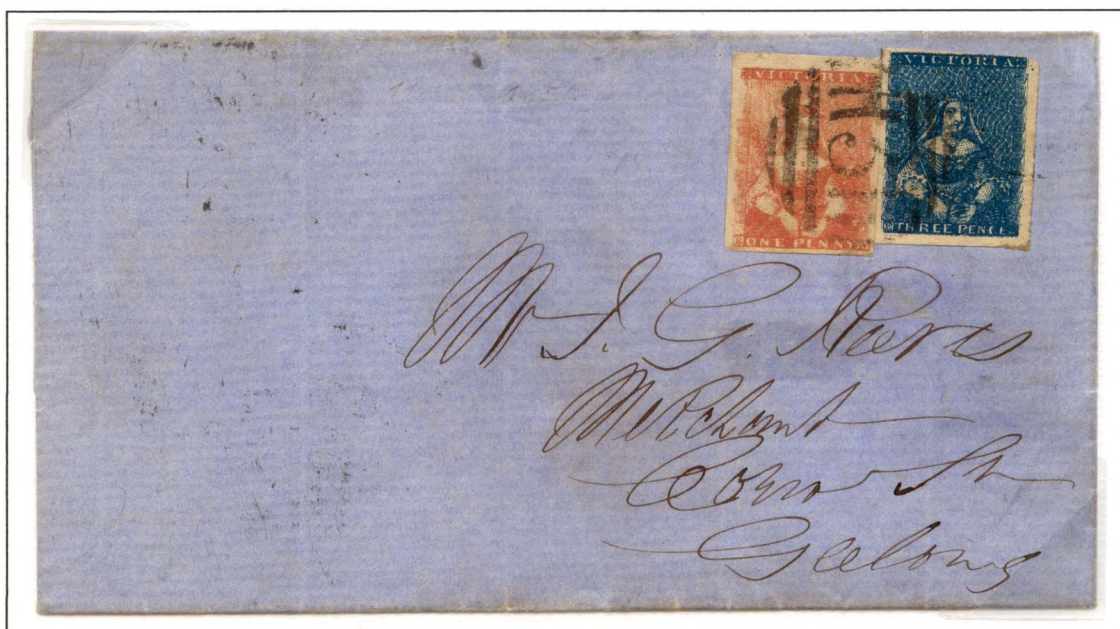 VICTORIA
ONE PENNY
VICTORIA
THREE PENCE
Mr J. G.
Merchant
Corio St
Geelong